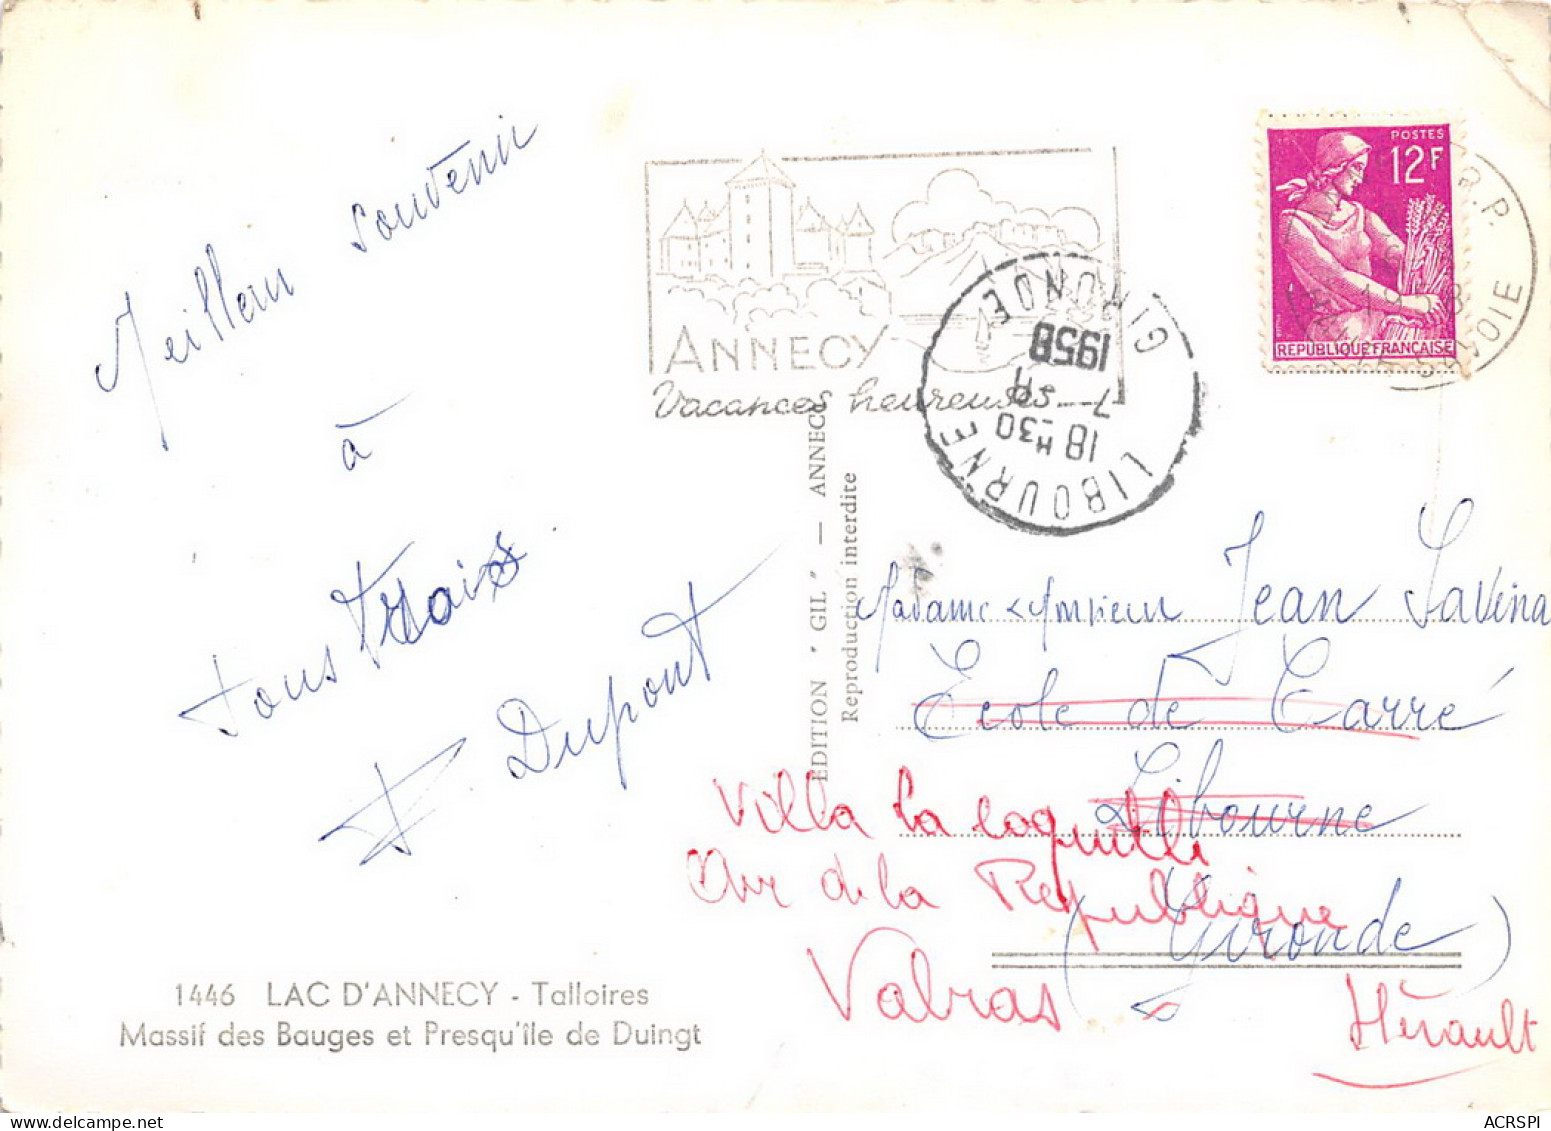 Meilleur souvenir
à
tous trois
F. Dupont
1446 LAC D'ANNECY - Talloires
Massif des Bauges et Presqu'île de Duingt
ANNECY
Vacances heureuses
EDITION "GIL" — ANNECY
Reproduction interdite
LIBOURNE
18 H 30
7 - 
1958
GIRONDE
POSTES
12F
REPUBLIQUE FRANCAISE
R.P.
1958
SAVOIE
Madame & Monsieur Jean Savina
Ecole de Carré
Libourne
(Gironde)
Villa la coquille
Av de la République
Valras
Hérault
ACRSPI